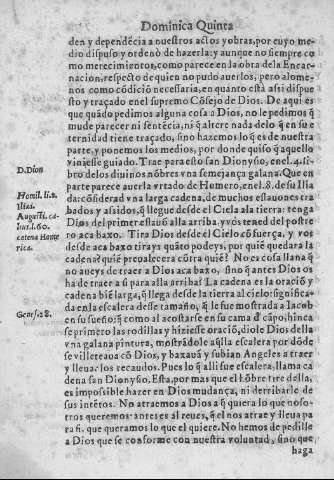 Dominica Quinta
den y dependẽcia a nuestros actos y obras, por cuyo me-
dio dispuso y ordenò de hazerla: y aunque no siempre co
mo merecimientos, como parece en la obra dela Encar-
nacion, respecto de quien no pudo auerlos, pero alome-
nos como cõdiciõ necessaria, en quanto està assi dispue
sto y traçado enel supremo Cõsejo de Dios. De aqui es
que quãdo pedimos alguna cosa a Dios, no le pedimos q̃
mude parecer ni sentẽcia, ni q̃ altere nada delo q̃ en su e-
ternidad tiene traçado, sino hazemos lo q̃ es de nuestra
parte, y ponemos los medios, por donde quiso q̃ aquello
viniesse guiado. Trae para esto san Dionysio, enel .4. li-
D.Dion
bro delos diuinos nõbres vna semejança galana. Que en
parte parece auerla vrtado de Homero, enel .8. de su Ilia
Homil. li.8.
Iliad.
Augusti. ca-
lius.l.60.
catena Home
rica.
da: cõsiderad vna larga cadena, de muchos eslauones tra
bados y assidos, q̃ llegue desde el Cielo ala tierra: tenga
Dios del primer eslauõ alla arriba, y vos tened del postre
ro aca baxo. Tira Dios desde el Cielo cõ fuerça, y vos
desde aca baxo tirays quãto podeys, por quiẽ quedara la
cadena? quiẽ preualecera cõtra quiẽ? No es cosa llana q̃
no aueys de traer a Dios aca baxo, sino q̃ antes Dios os
ha de traer a si para alla arriba? La cadena es la oraciõ y
cadena biẽ larga, q̃ llega desde la tierra al cielo: significa-
da enla escalera deste tamaño, q̃ le fue mostrada a Iacob
Genesis 8.
en su sueño; q̃ como al acostarse en su cama d' cãpo, hinca
se primero las rodillas y hiziesse oraciõ, diole Dios della
vna galana pintura, mostrãdole aq̃lla escalera por dõde
se villeteaua cõ Dios, y baxauã y subian Angeles a traer
y lleuar los recaudos. Pues lo q̃ alli fue escalera, llama ca
dena san Dionysio. Esta, por mas que el hõbre tire della,
es impossible hazer en Dios mudança, ni derribarle de
sus intẽtos. No atraemos a Dios a q̃ quiera lo que noso-
tros queremos: antes es al reues, q̃ el nos atrae y lleua pa
ra si. que queramos lo que el quiere. No hemos de pedille
a Dios que se conforme con nuestra voluntad, sino que
haga